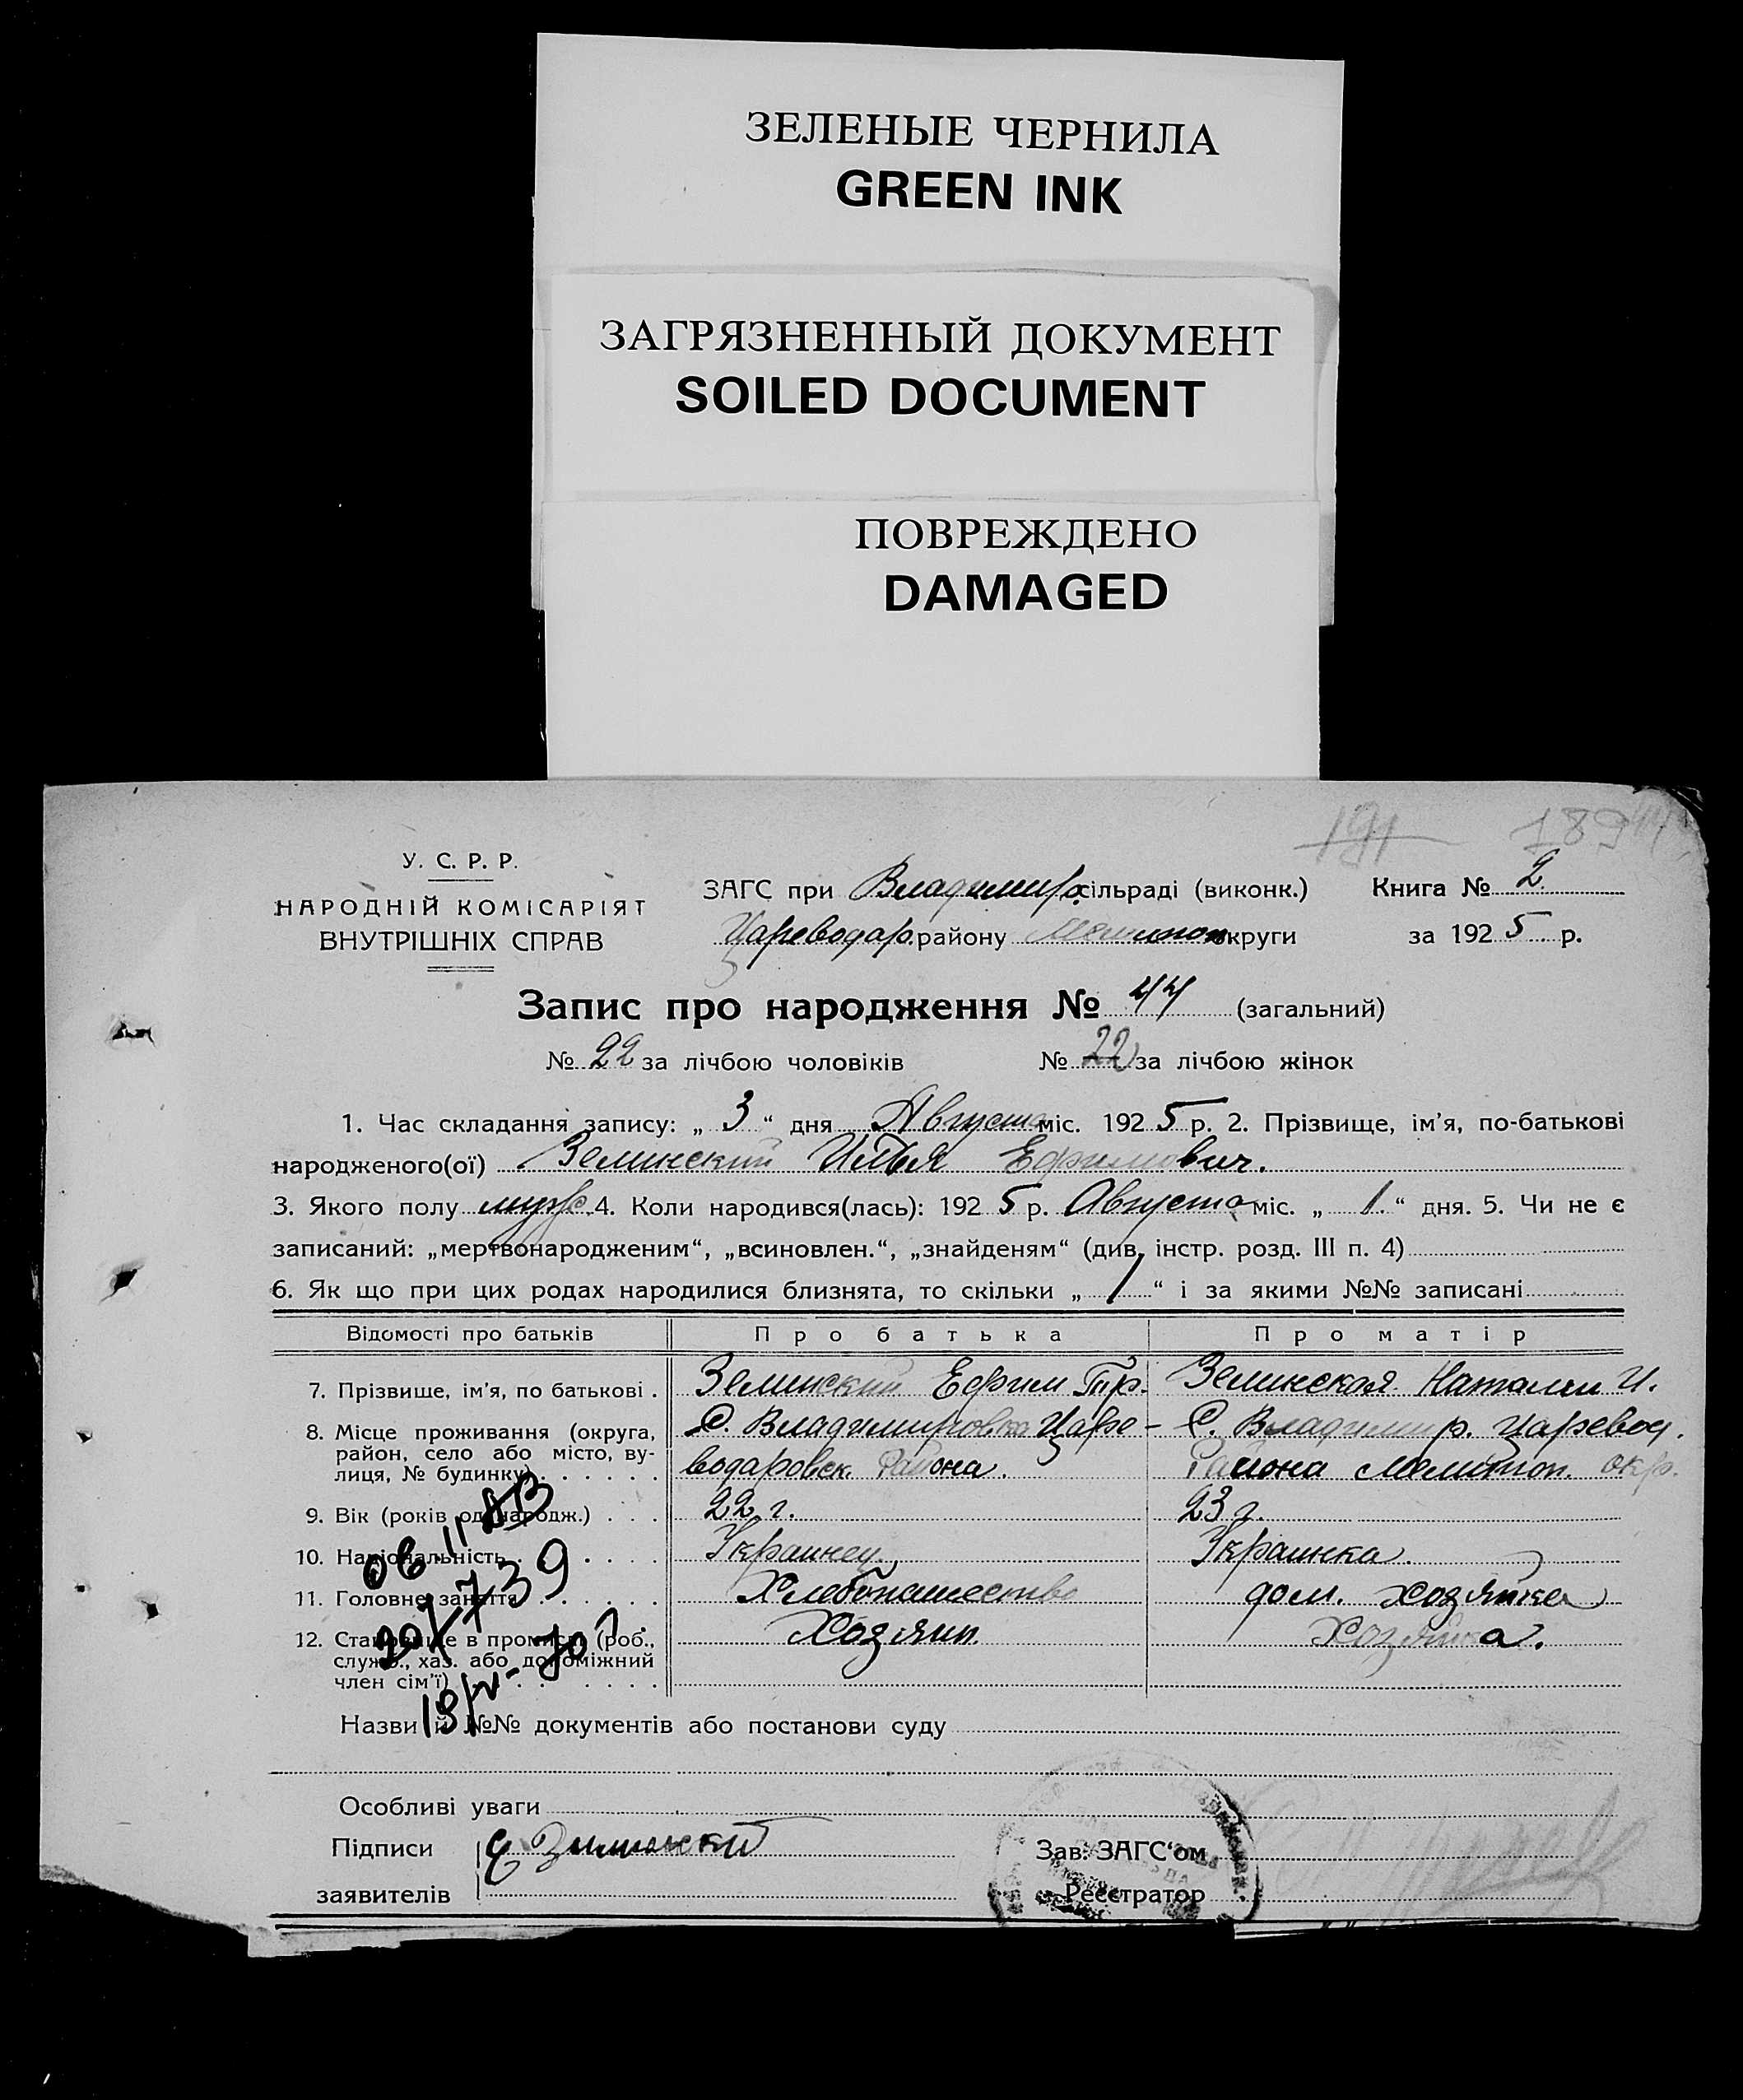 ЗЕЛЕНЫЕ ЧЕРНИЛА
GREEN INK
ЗАГРЯЗНЕННЫЙ ДОКУМЕНТ
SOILED DOCUMENT
ПОВРЕЖДЕНО
DAMAGED
191 189
У. С. Р. Р.
НАРОДНІЙ КОМІСАРІЯТ
ВНУТРІШНІХ СПРАВ
ЗАГС при Владимир. сільраді (виконк.) Книга № 2
Цареводар. району Мелитоп округи за 1925 р.
Запис про народження № 44 (загальний)
№ 22 за лічбою чоловіків № 22 за лічбою жінок
1. Час складання запису: „ 3 “ дня Августа міс. 1925 р. 2. Прізвище, ім’я, по-батькові
народженого(ої) Зелинский Илья Ефимович.
3. Якого полу муж. 4. Коли народився(лась): 1925 р. Августа міс. „ 1. “ дня. 5. Чи не є
записаний: „мертвонародженим“, „всиновлен.“, „знайденям“ (див. інстр. розд. III п. 4)
6. Як що при цих родах народилися близнята, то скільки „ / “ і за якими №№ записані
Відомості про батьків Про батька Про матір
7. Прізвище, ім’я, по батькові . Зелинский Ефим Тр. Зелинская Наталия И.
8. Місце проживання (округа, С. Владимировка Царе- С. Владимир. Царевод.
район, село або місто, ву-
лиця, № будинку) . . . . . . водаровск. Района. Района Мелитоп. окр.
9. Вік (років од народж.) . . . 22 г. 23 г.
10. Національність . . . . . Украинец. Украинка.
11. Головне заняття . . . . . . Хлебопашество дом. хозяйка
12. Становище в промислі (роб., Хозяин. Хозяйка.
служб., хаз. або допоміжний
член сім’ї) . . . . . . .
06.11
207739
19/IV-70
Назви й №№ документів або постанови суду
Особливі уваги
Підписи Е Зилинский Зав. ЗАГС‘ом
заявителів Реєстратор